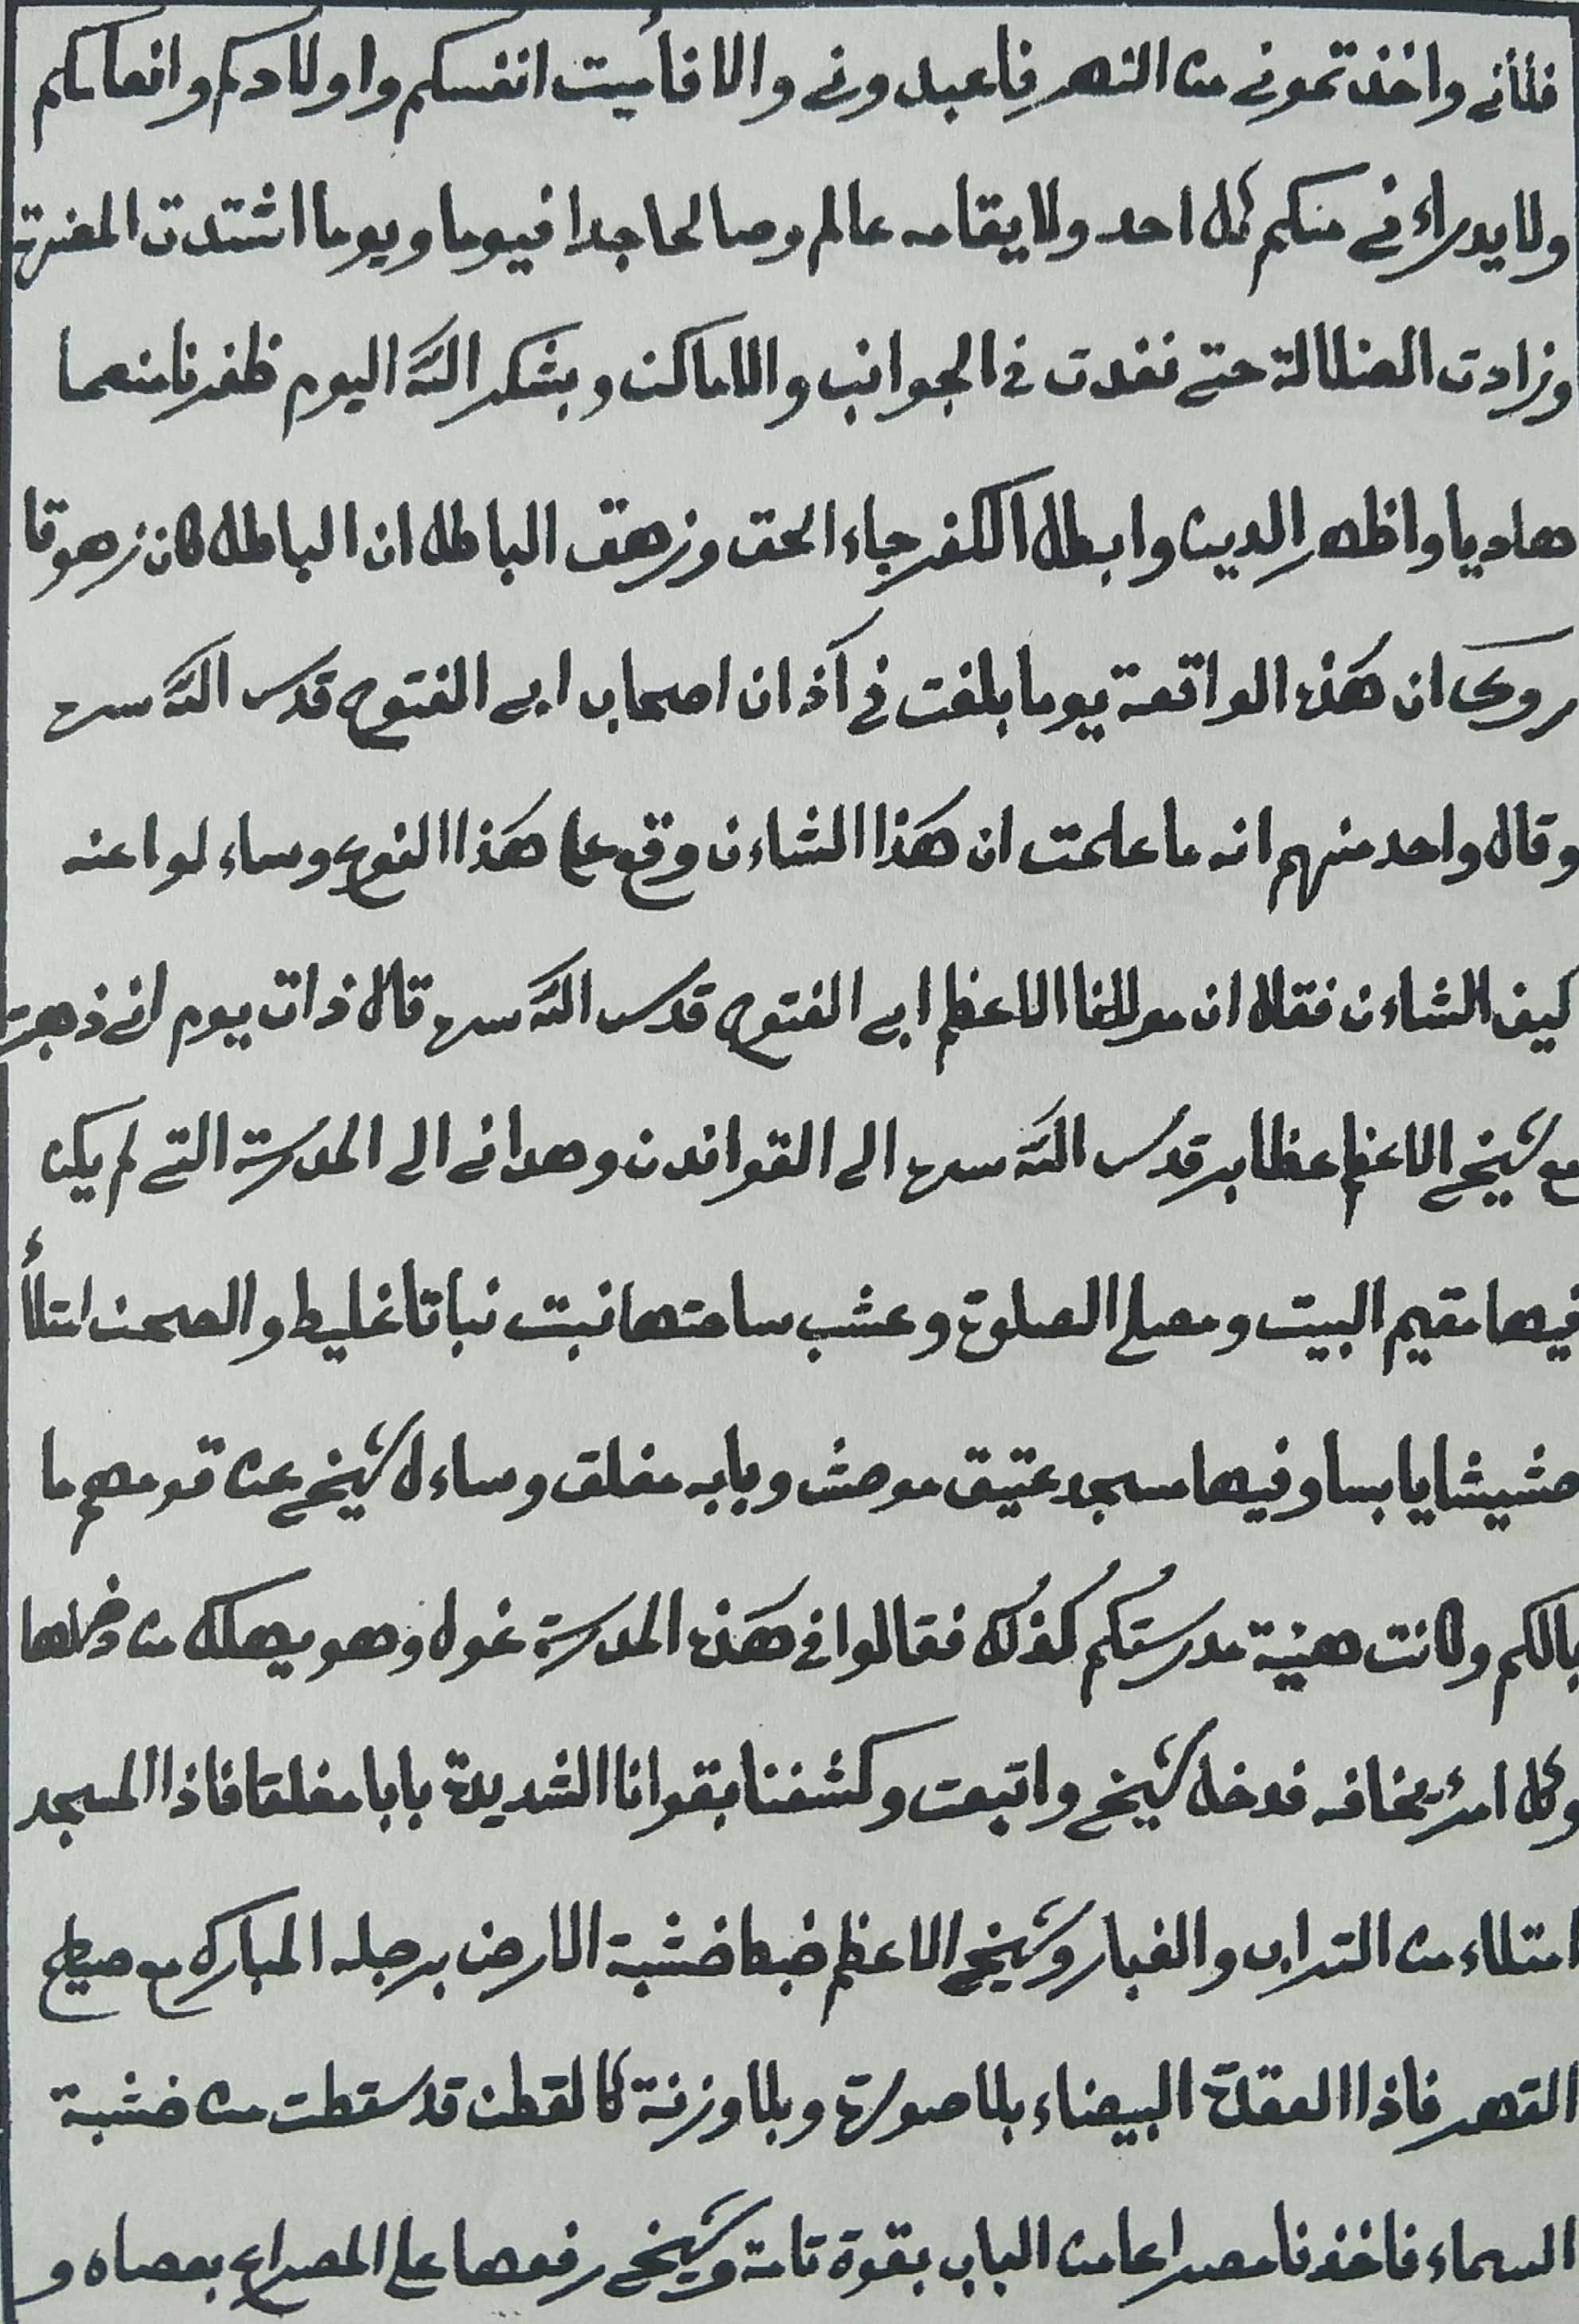 فلأنى واخذتمونى من النهر فاعبدونى والا فأميت انفسكم واولادكم وانعامكم
ولا يدراء فى منكم كل احد ولا يقامه عالم وصالحا جدا فيوما ويوما اشتدت المضرة
وزادت الضلالة حتى نفدت فى الجوانب والاماكن وبشكر الله اليوم ظفرنا منعما
هاديا واظهر الدين وابطل الكفر جاء الحق وزهق الباطل ان الباطل كان زهوقا
روى ان هذه الواقعة يوما بلغت فى آذان اصحاب ابى الفتوح قدس الله سره
وقال واحد منهم انه ما علمت ان هذا الشاءن وقع على هذا النوع وساء لوا عنه
كيف الشاءن فقال ان مولانا الاعظم ابى الفتوح قدس الله سره قال ذات يوم انى ذهبت
مع شيخى الاعظم عظابر قدس الله سره الى القواندن وهدانى الى المدرسة التى لم يكن
فيها مقيم البيت ومصلى الصلوة وعشب ساحتها نبت نباتا غليظ والصحن امتلأ
حشيشا يابسا وفيها مسجد عتيق موحش وبابه مغلق وساءل شيخى عن قومهم ما
بالكم وكانت هيئة مدرستكم كذلك فقالوا فى هذه المدرسة غول وهو يهلك من دخلها
وكل امرئ يخافه فدخل شيخى واتبعت وكشفنا بقوانا الشديدة بابا مغلقا فاذا المسجد
امتلاء من التراب والغبار وشيخى الاعظم خبط خشبة الارض برجله المبارك مع صياح
القهر فاذا العقدة البيضاء بلا صورة وبلا وزنة كالقطن قد سقطت من خشبة
السماء فاخذنا مصراعا من الباب بقوة تامة وشيخى رفعها على المصراع بعصاه و